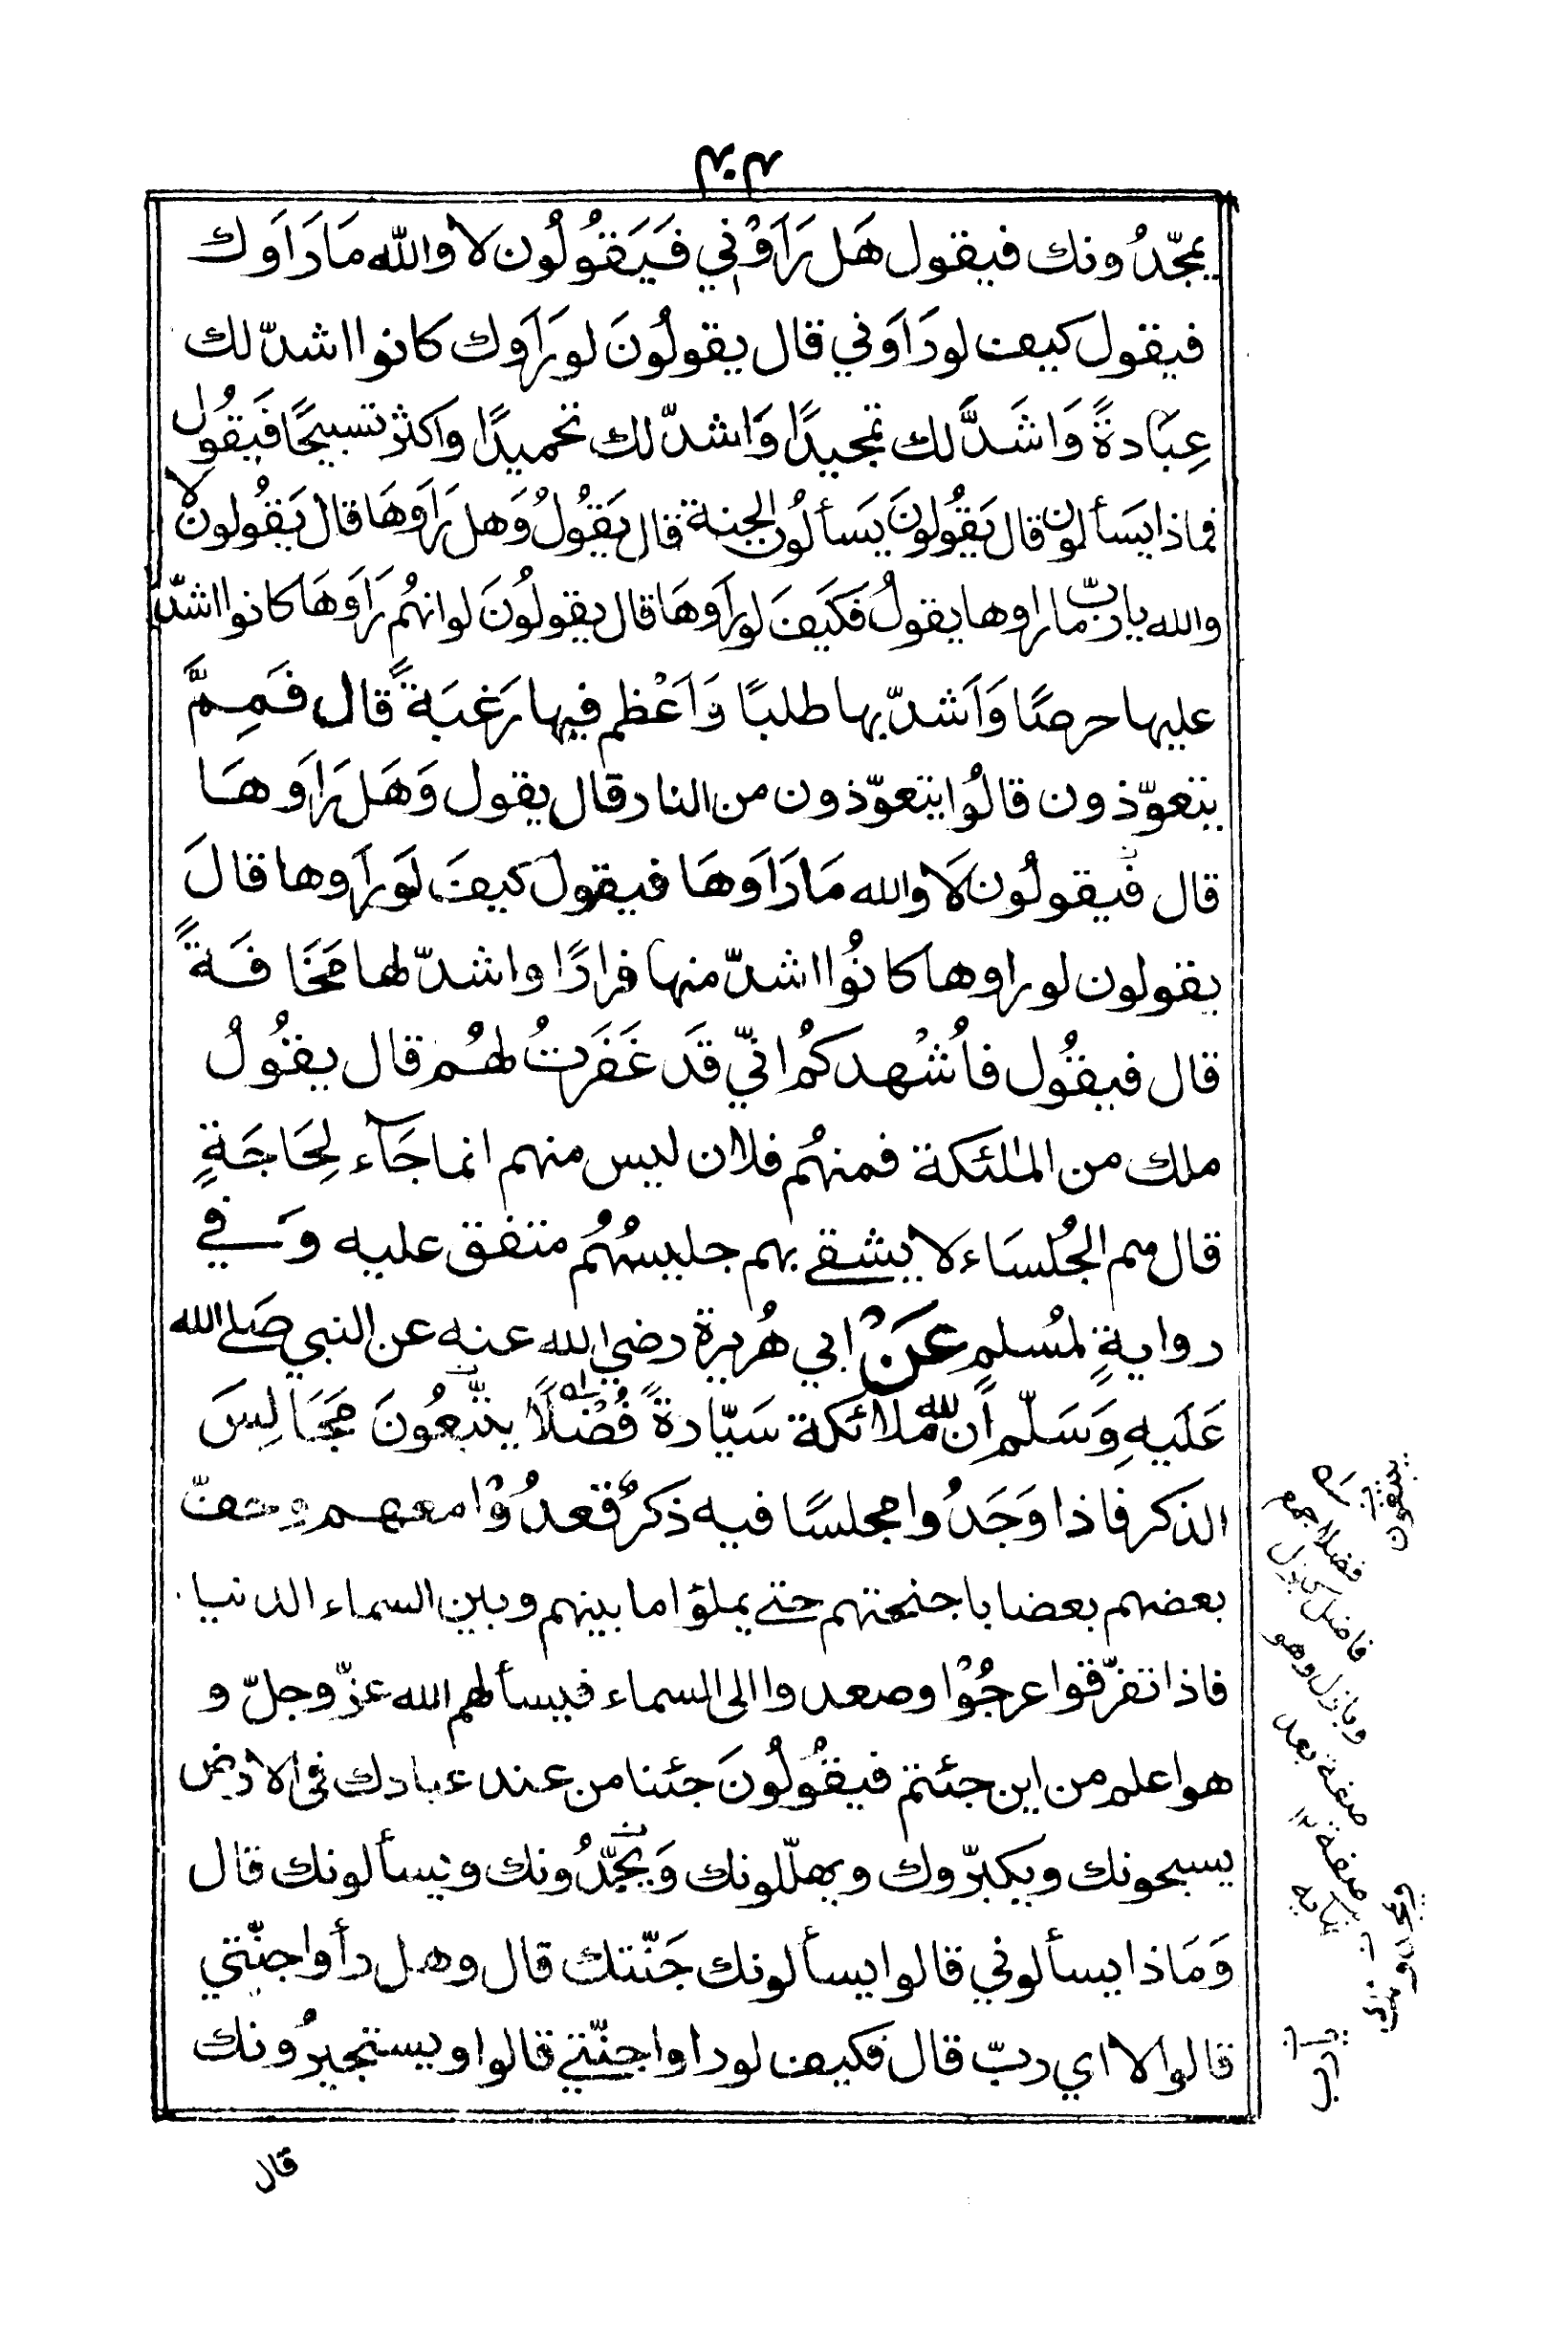 يمجّدُونك فيقول هَل رَاَوْني فَيَقُولُون لا والله مَا رَاَوك
فيقول كيف لو رَاَوني قال يقولُونَ لو رَاَوك كانوا اشدّ لك
عِبَادةً وَاشَدَّ لك تمجيدًا وَاشدّ لك تحميدًا واكثر تسبيحًا فَيقُول
فماذا يَسألون قال يَقُولونَ يَسألُون الجنة قال يَقُولُ وَهل رَاَوهَا قال يَقُولون لا
والله يا ربّ ما راوها يقولُ فَكَيفَ لو رَاَوهَا قال يقولُونَ لو انهُم رَاَوهَا كانوا اشدّ
عليها حرصًا وَاَشدّ بها طلبًا وَاَعْظم فيها رَغبَةً قال فَمِمَّ
يتعوّذون قالُوا يتعوّذون من النار قال يقول وَهَل رَاَوهَا
قال فيقولُون لَا والله مَا رَاَوهَا فيقول كيفَ لَو رَاَوها قالَ
يقولون لو راوها كانُوا اشدّ منها فرارًا واشدّ لها مَخَافَةً
قال فيقُول فاُشْهدكمُ انّي قَد غَفَرتُ لهُم قال يقُولُ
ملك من الملئكة فمنهُم فلان ليس منهم انما جَآء لِحَاجَةٍ
قال هم الجُلسَاء لا يشقى بهم جليسُهُم متفق عليه وَفي
روايةٍ لمُسلمٍ عَنْ ابي هُريرة رضي الله عنه عن النبي صَلى الله
عَلَيهِ وَسَلّم اَنّ لله ملائكة سَيّارةً فُضْلًا يتّبعُونَ مَجَالِسَ
الذكر فاذا وَجَدُوا مجلسًا فيه ذكرٌ قعدُوْا معهم وحفّ
بعضهم بعضا باجنحتهم حتى يملؤا ما بينهم وبين السماء الدنيا
فاذا تفرّقوا عرجُوْا وصعدوا الى السماء فيسألهم الله عزّ وجلّ و
هو اعلم من اين جئتم فيقُولُونَ جئنا من عند عبادك في الارض
يسبحونك ويكبّروك ويهلّلونك وَيحمّدُونك ويسألونك قال
وَمَاذا يسألوني قالوا يسألونك جَنّتك قال وهل رأوا جنّتي
قالوا لا اي ربّ قال فكيف لو راوا جنّتي قالوا ويستجيرُونك
قال
فضلا جمع
فاضل كبزل
وبازل وهو
صفة بعد
صفة
يا رب